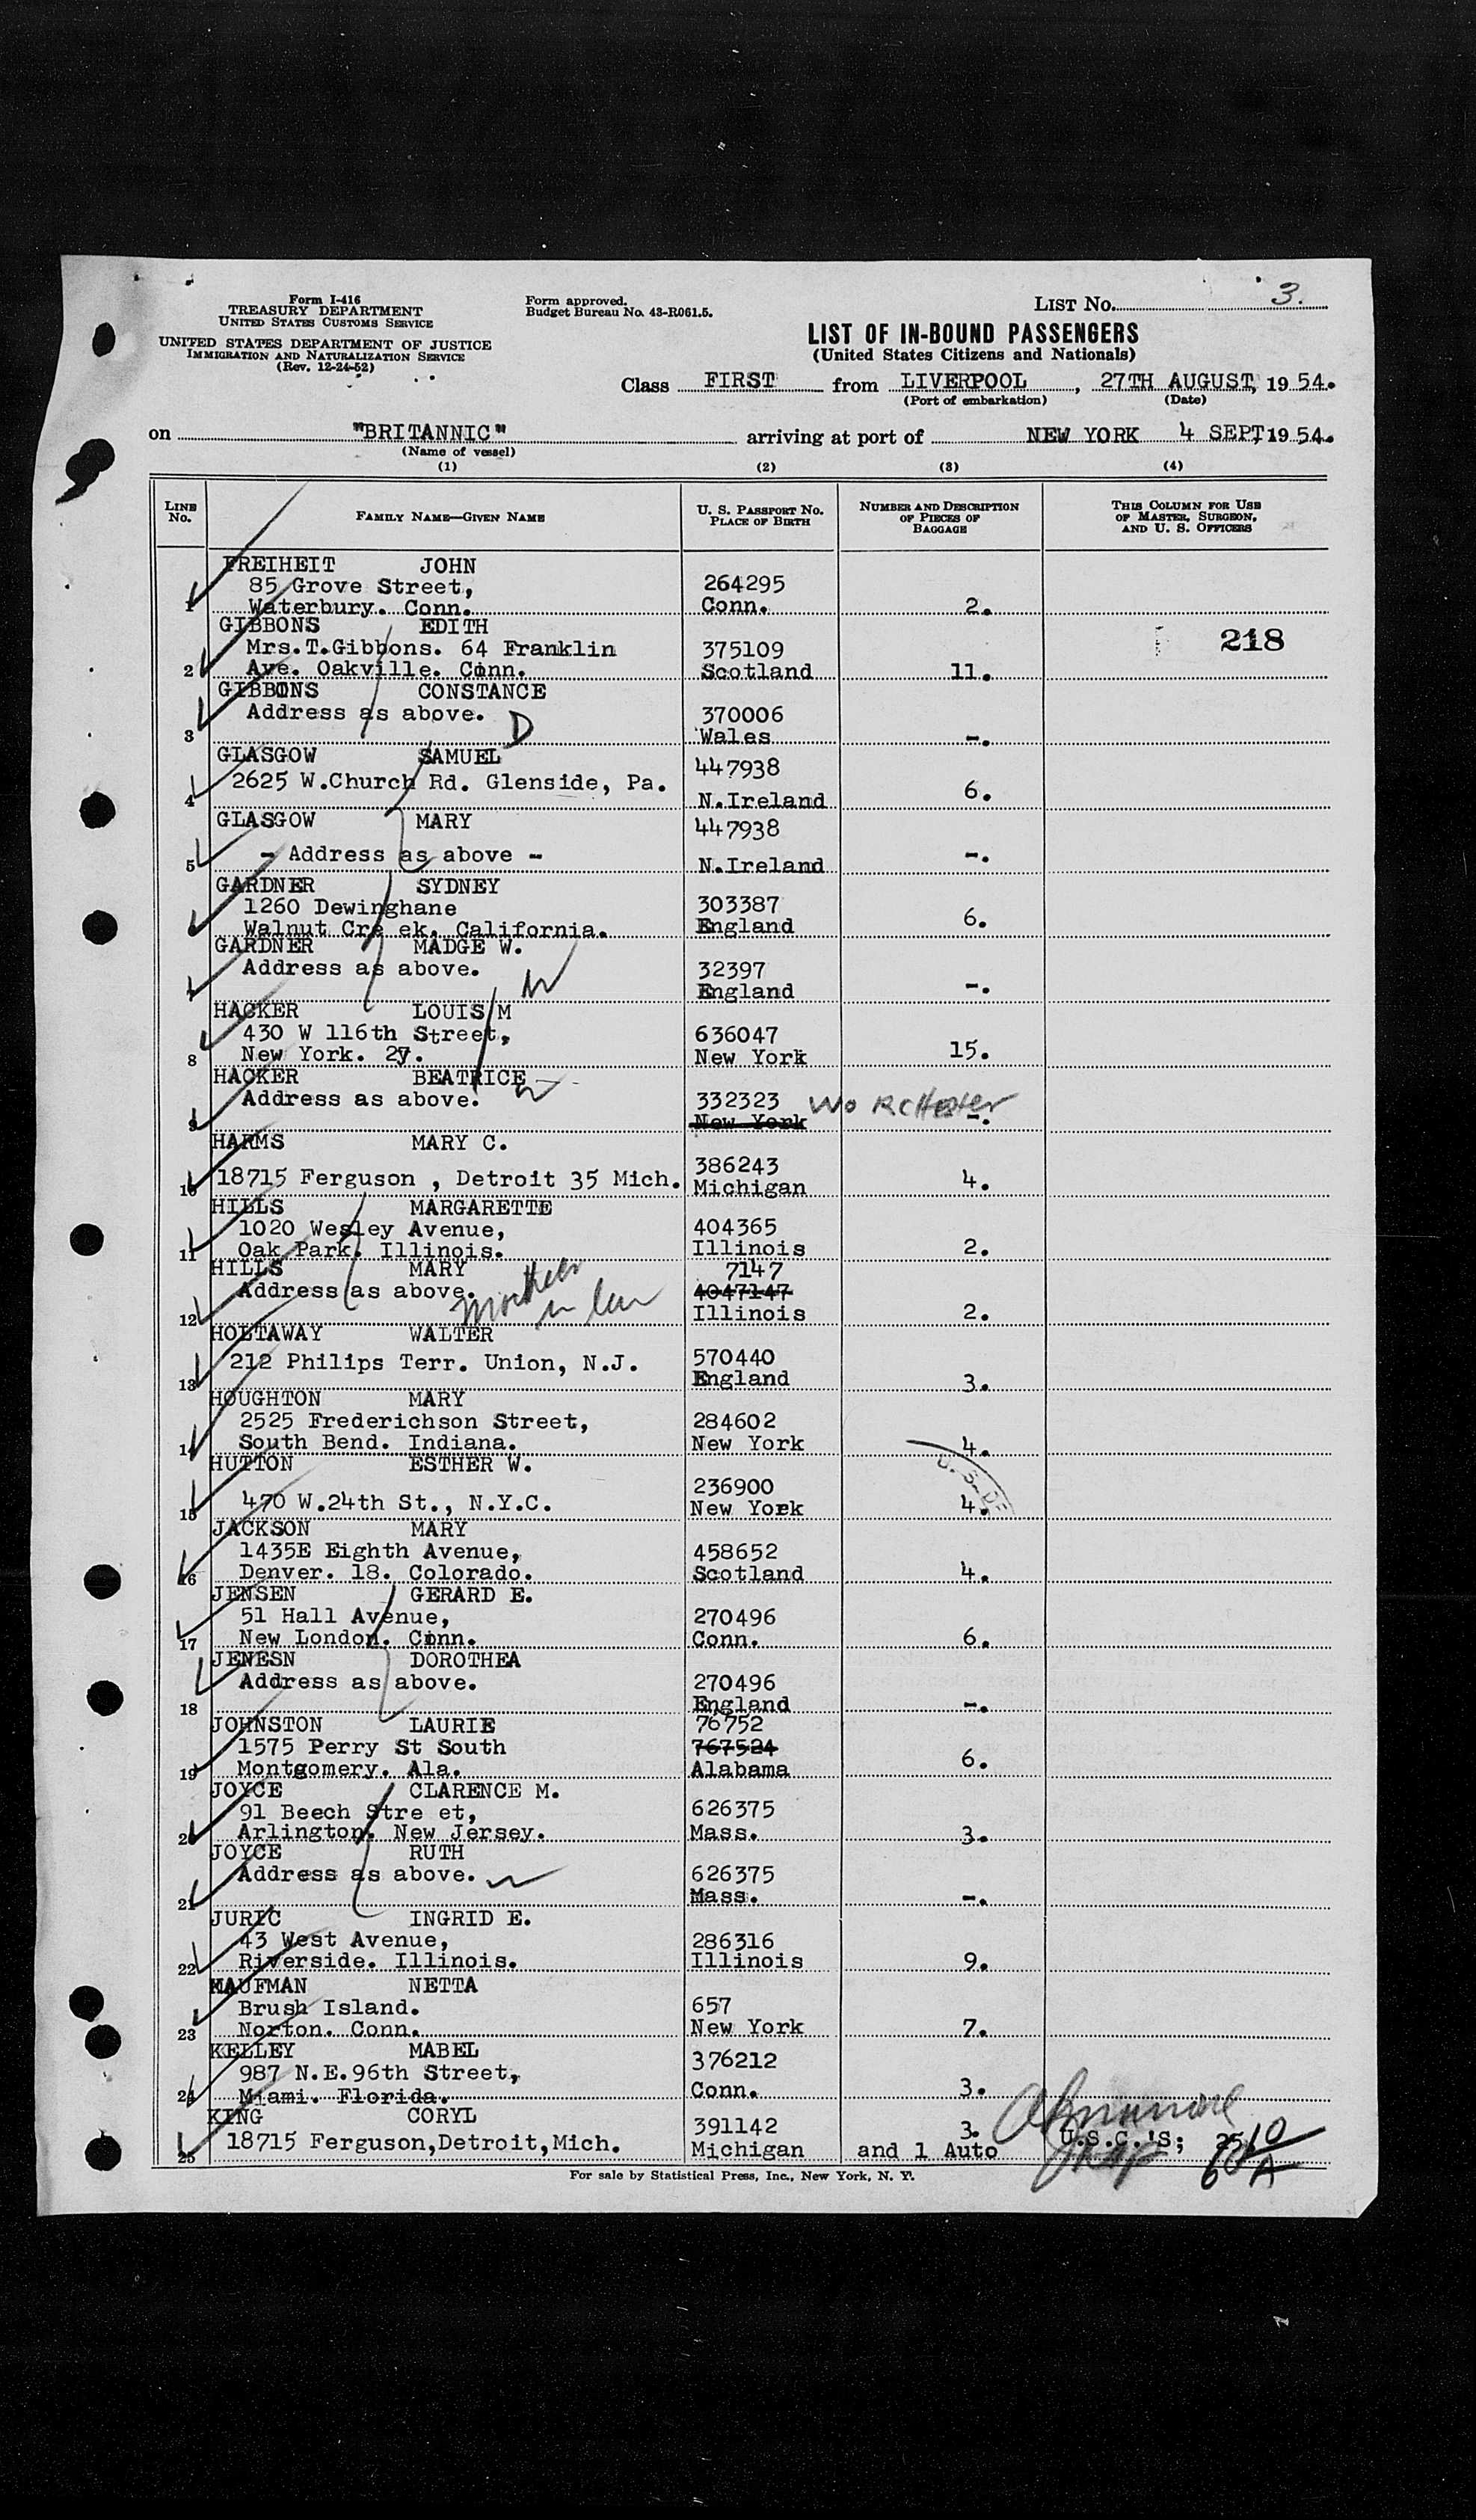 Form I-416
TREASURY DEPARTMENT
UNITED STATES CUSTOMS SERVICE
UNITED STATES DEPARTMENT OF JUSTICE
IMMIGRATION AND NATURALIZATION SERVICE
(Rev. 12-24-52)
Form approved.
Budget Bureau No. 43-R061.5.
LIST NO. 3.
LIST OF IN-BOUND PASSENGERS
(United States Citizens and Nationals)
Class FIRST from LIVERPOOL, 27TH AUGUST, 1954.
(Port of embarkation) (Date)
on "BRITANNIC" arriving at port of NEW YORK 4 SEPT, 1954.
(Name of vessel)
(1) (2) (3) (4)
LINE NO. FAMILY NAME—GIVEN NAME U. S. PASSPORT NO. PLACE OF BIRTH NUMBER AND DESCRIPTION OF PIECES OF BAGGAGE THIS COLUMN FOR USE OF MASTER, SURGEON, AND U. S. OFFICERS
FREIHEIT JOHN
85 Grove Street, 264295
1 Waterbury. Conn. Conn. 2.
GIBBONS EDITH
218
Mrs.T.Gibbons. 64 Franklin 375109
2 Ave. Oakville. Conn. Scotland 11.
GIBBONS CONSTANCE
Address as above. D 370006
3 Wales -.
GLASGOW SAMUEL
2625 W.Church Rd. Glenside, Pa. 447938
4 N.Ireland 6.
GLASGOW MARY 447938
5 - Address as above - N.Ireland -.
GARDNER SYDNEY
1260 Dewinghane 303387
Walnut Cre ek. California. England 6.
GARDNER MADGE W.
Address as above. 32397
England -.
HACKER LOUIS M
430 W 116th Street, 636047
8 New York. 27. New York 15.
HACKER BEATRICE
Address as above. 332323 WORCHester
9 New York -.
HARMS MARY C.
386243
10 18715 Ferguson , Detroit 35 Mich. Michigan 4.
HILLS MARGARETTE
1020 Wesley Avenue, 404365
11 Oak Park. Illinois. Illinois 2.
HILLS MARY 7147
Address as above. Mother in law 4047147
12 Illinois 2.
HOLTAWAY WALTER
212 Philips Terr. Union, N.J. 570440
13 England 3.
HOUGHTON MARY
2525 Frederichson Street, 284602
14 South Bend. Indiana. New York 4.
HUTTON ESTHER W.
U. S. DE
236900
15 470 W.24th St., N.Y.C. New York 4.
JACKSON MARY
1435E Eighth Avenue, 458652
16 Denver. 18. Colorado. Scotland 4.
JENSEN GERARD E.
51 Hall Avenue, 270496
17 New London. Conn. Conn. 6.
JENESN DOROTHEA
Address as above. 270496
18 England -.
JOHNSTON LAURIE 76752
1575 Perry St South 767524
19 Montgomery. Ala. Alabama 6.
JOYCE CLARENCE M.
91 Beech Stre et, 626375
20 Arlington. New Jersey. Mass. 3.
JOYCE RUTH
Address as above. 626375
21 Mass. -.
JURIC INGRID E.
43 West Avenue, 286316
22 Riverside. Illinois. Illinois 9.
KAUFMAN NETTA
Brush Island. 657
23 Norton. Conn. New York 7.
KELLEY MABEL
987 N.E.96th Street, 376212
24 Miami. Florida. Conn. 3.
KING CORYL 391142 3.
25 18715 Ferguson,Detroit,Mich. Michigan and 1 Auto U.S.C.'S; 25
For sale by Statistical Press, Inc., New York, N. Y.